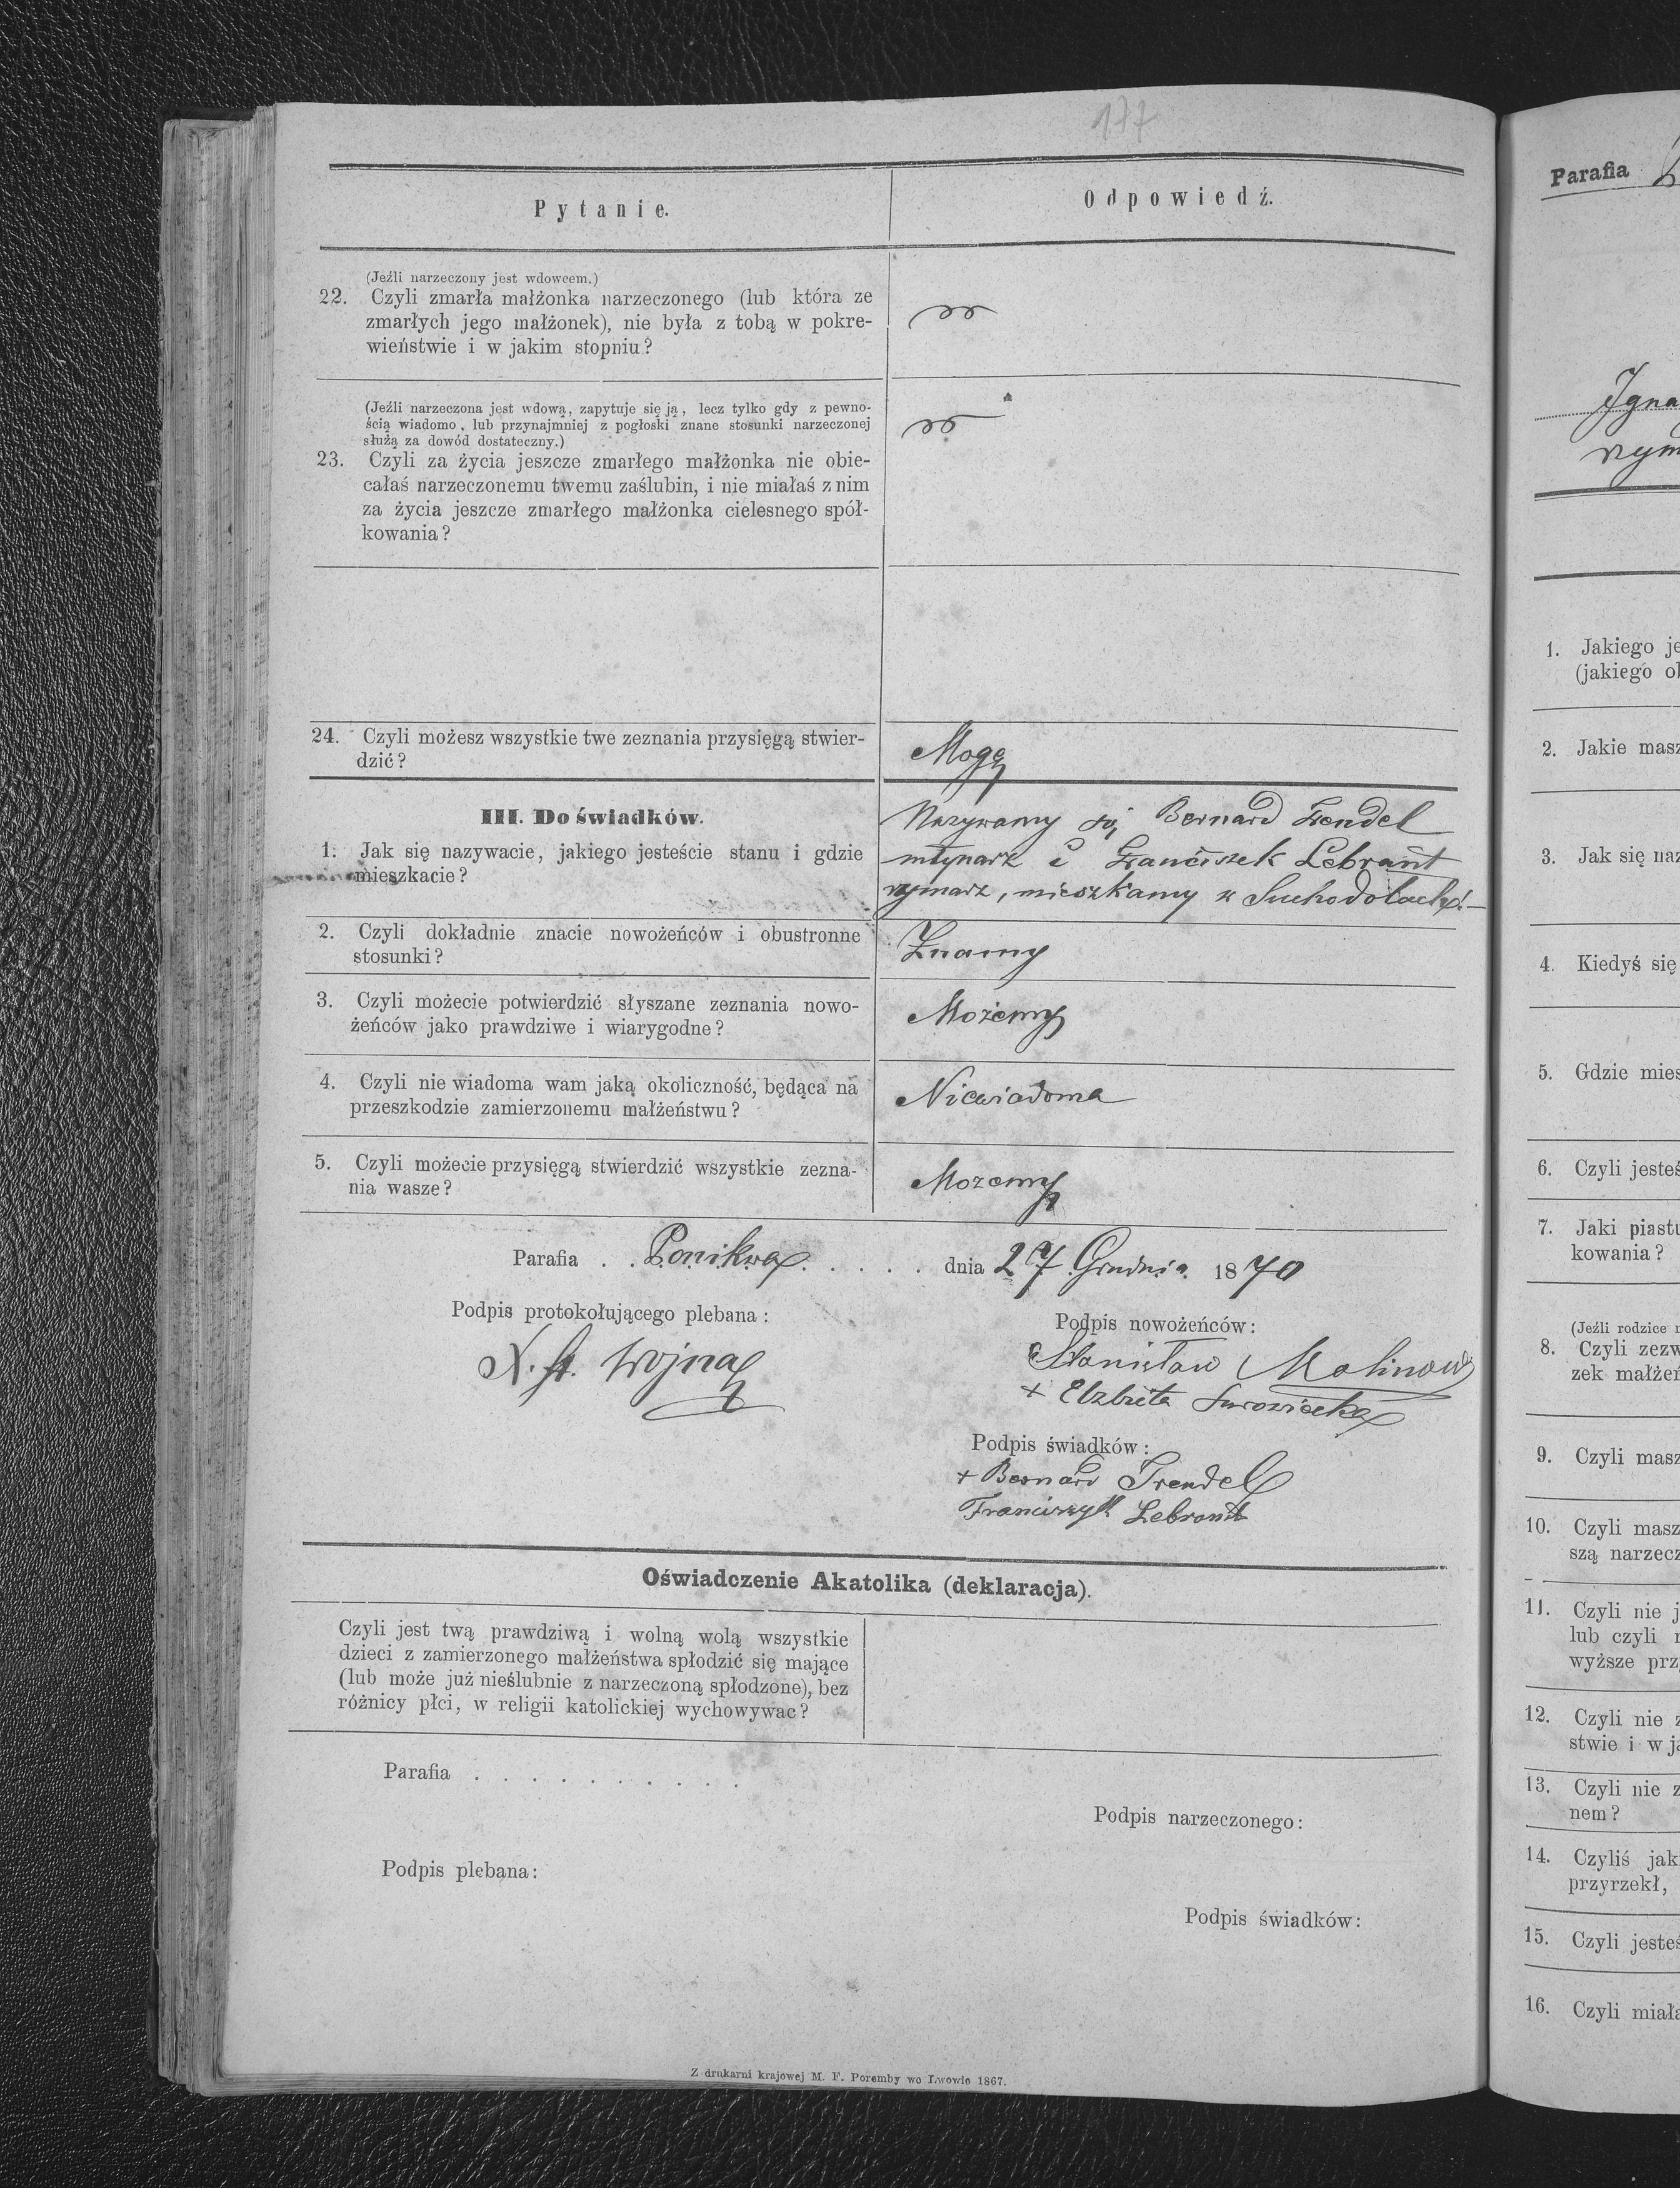 177
Pytanie.
Odpowiedź.
(Jeźli narzeczony jest wdowcem.)
22. Czyli zmarła małżonka narzeczonego (lub która ze
zmarłych jego małżonek), nie była z tobą w pokre-
wieństwie i w jakim stopniu?
(Jeźli narzeczona jest wdową, zapytuje się ją, lecz tylko gdy z pewno-
ścią wiadomo, lub przynajmniej z pogłoski znane stosunki narzeczonej
służą za dowód dostateczny.)
23. Czyli za życia jeszcze zmarłego małżonka nie obie-
całaś narzeczonemu twemu zaślubin, i nie miałaś z nim
za życia jeszcze zmarłego małżonka cielesnego spół-
kowania?
24. Czyli możesz wszystkie twe zeznania przysięgą stwier-
dzić?
Mogę
III. Do świadków.
1. Jak się nazywacie, jakiego jesteście stanu i gdzie
mieszkacie?
Nazywamy się Bernard Trendel
młynarz i Franciszek Lebrant
rymarz, mieszkamy w Suchodołach.
2. Czyli dokładnie znacie nowożeńców i obustronne
stosunki?
Znamy
3. Czyli możecie potwierdzić słyszane zeznania nowo-
żeńców jako prawdziwe i wiarygodne?
Możemy
4. Czyli nie wiadoma wam jaką okoliczność, będąca na
przeszkodzie zamierzonemu małżeństwu?
Niewiadoma
5. Czyli możecie przysięgą stwierdzić wszystkie zezna-
nia wasze?
Mozemy
Parafia . . Ponikwa . . . . . dnia 27 Grudnia 1870
Podpis protokołującego plebana:
X. St. Wojna
Podpis nowożeńców:
Stanisław Malinow
+ Elzbieta Surowiecka
Podpis świadków:
+ Bernard Trendel
Franciszyk Lebrant
Oświadczenie Akatolika (deklaracja).
Czyli jest twą prawdziwą i wolną wolą wszystkie
dzieci z zamierzonego małżeństwa spłodzić się mające
(lub może już nieślubnie z narzeczoną spłodzone), bez
różnicy płci, w religii katolickiej wychowywac?
Parafia . . . . . . . . . .
Podpis narzeczonego:
Podpis plebana:
Podpis świadków:
Z drukarni krajowej M. F. Poremby we Lwowie 1867.
Parafia
Igna
rym
1. Jakiego je
(jakiego ob
2. Jakie masz
3. Jak się naz
4. Kiedyś się
5. Gdzie mies
6. Czyli jesteś
7. Jaki piastu
kowania?
(Jeźli rodzice
8. Czyli zezw
zek małżeń
9. Czyli masz
10. Czyli masz
szą narzecz
11. Czyli nie j
lub czyli
wyższe prz
12. Czyli nie z
stwie i w ja
13. Czyli nie z
nem?
14. Czyliś jak
przyrzekł,
15. Czyli jesteś
16. Czyli miała